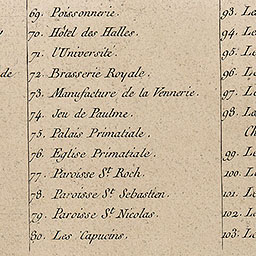 69. Poissonnerie.
70. Hôtel des Halles.
71. l'Université.
de
72. Brasserie Royale.
73. Manufacture de la Vennerie.
74. Jeu de Paulme.
75. Palais Primatiale.
76. Eglise Primatiale.
77. Paroisse St. Roch.
78. Paroisse St. Sebastien.
79. Paroisse St. Nicolas.
80. Les Capucins.
93. Le
94.
95. Le
96.
97.
98.
99.
100.
101.
102. L
103. Le